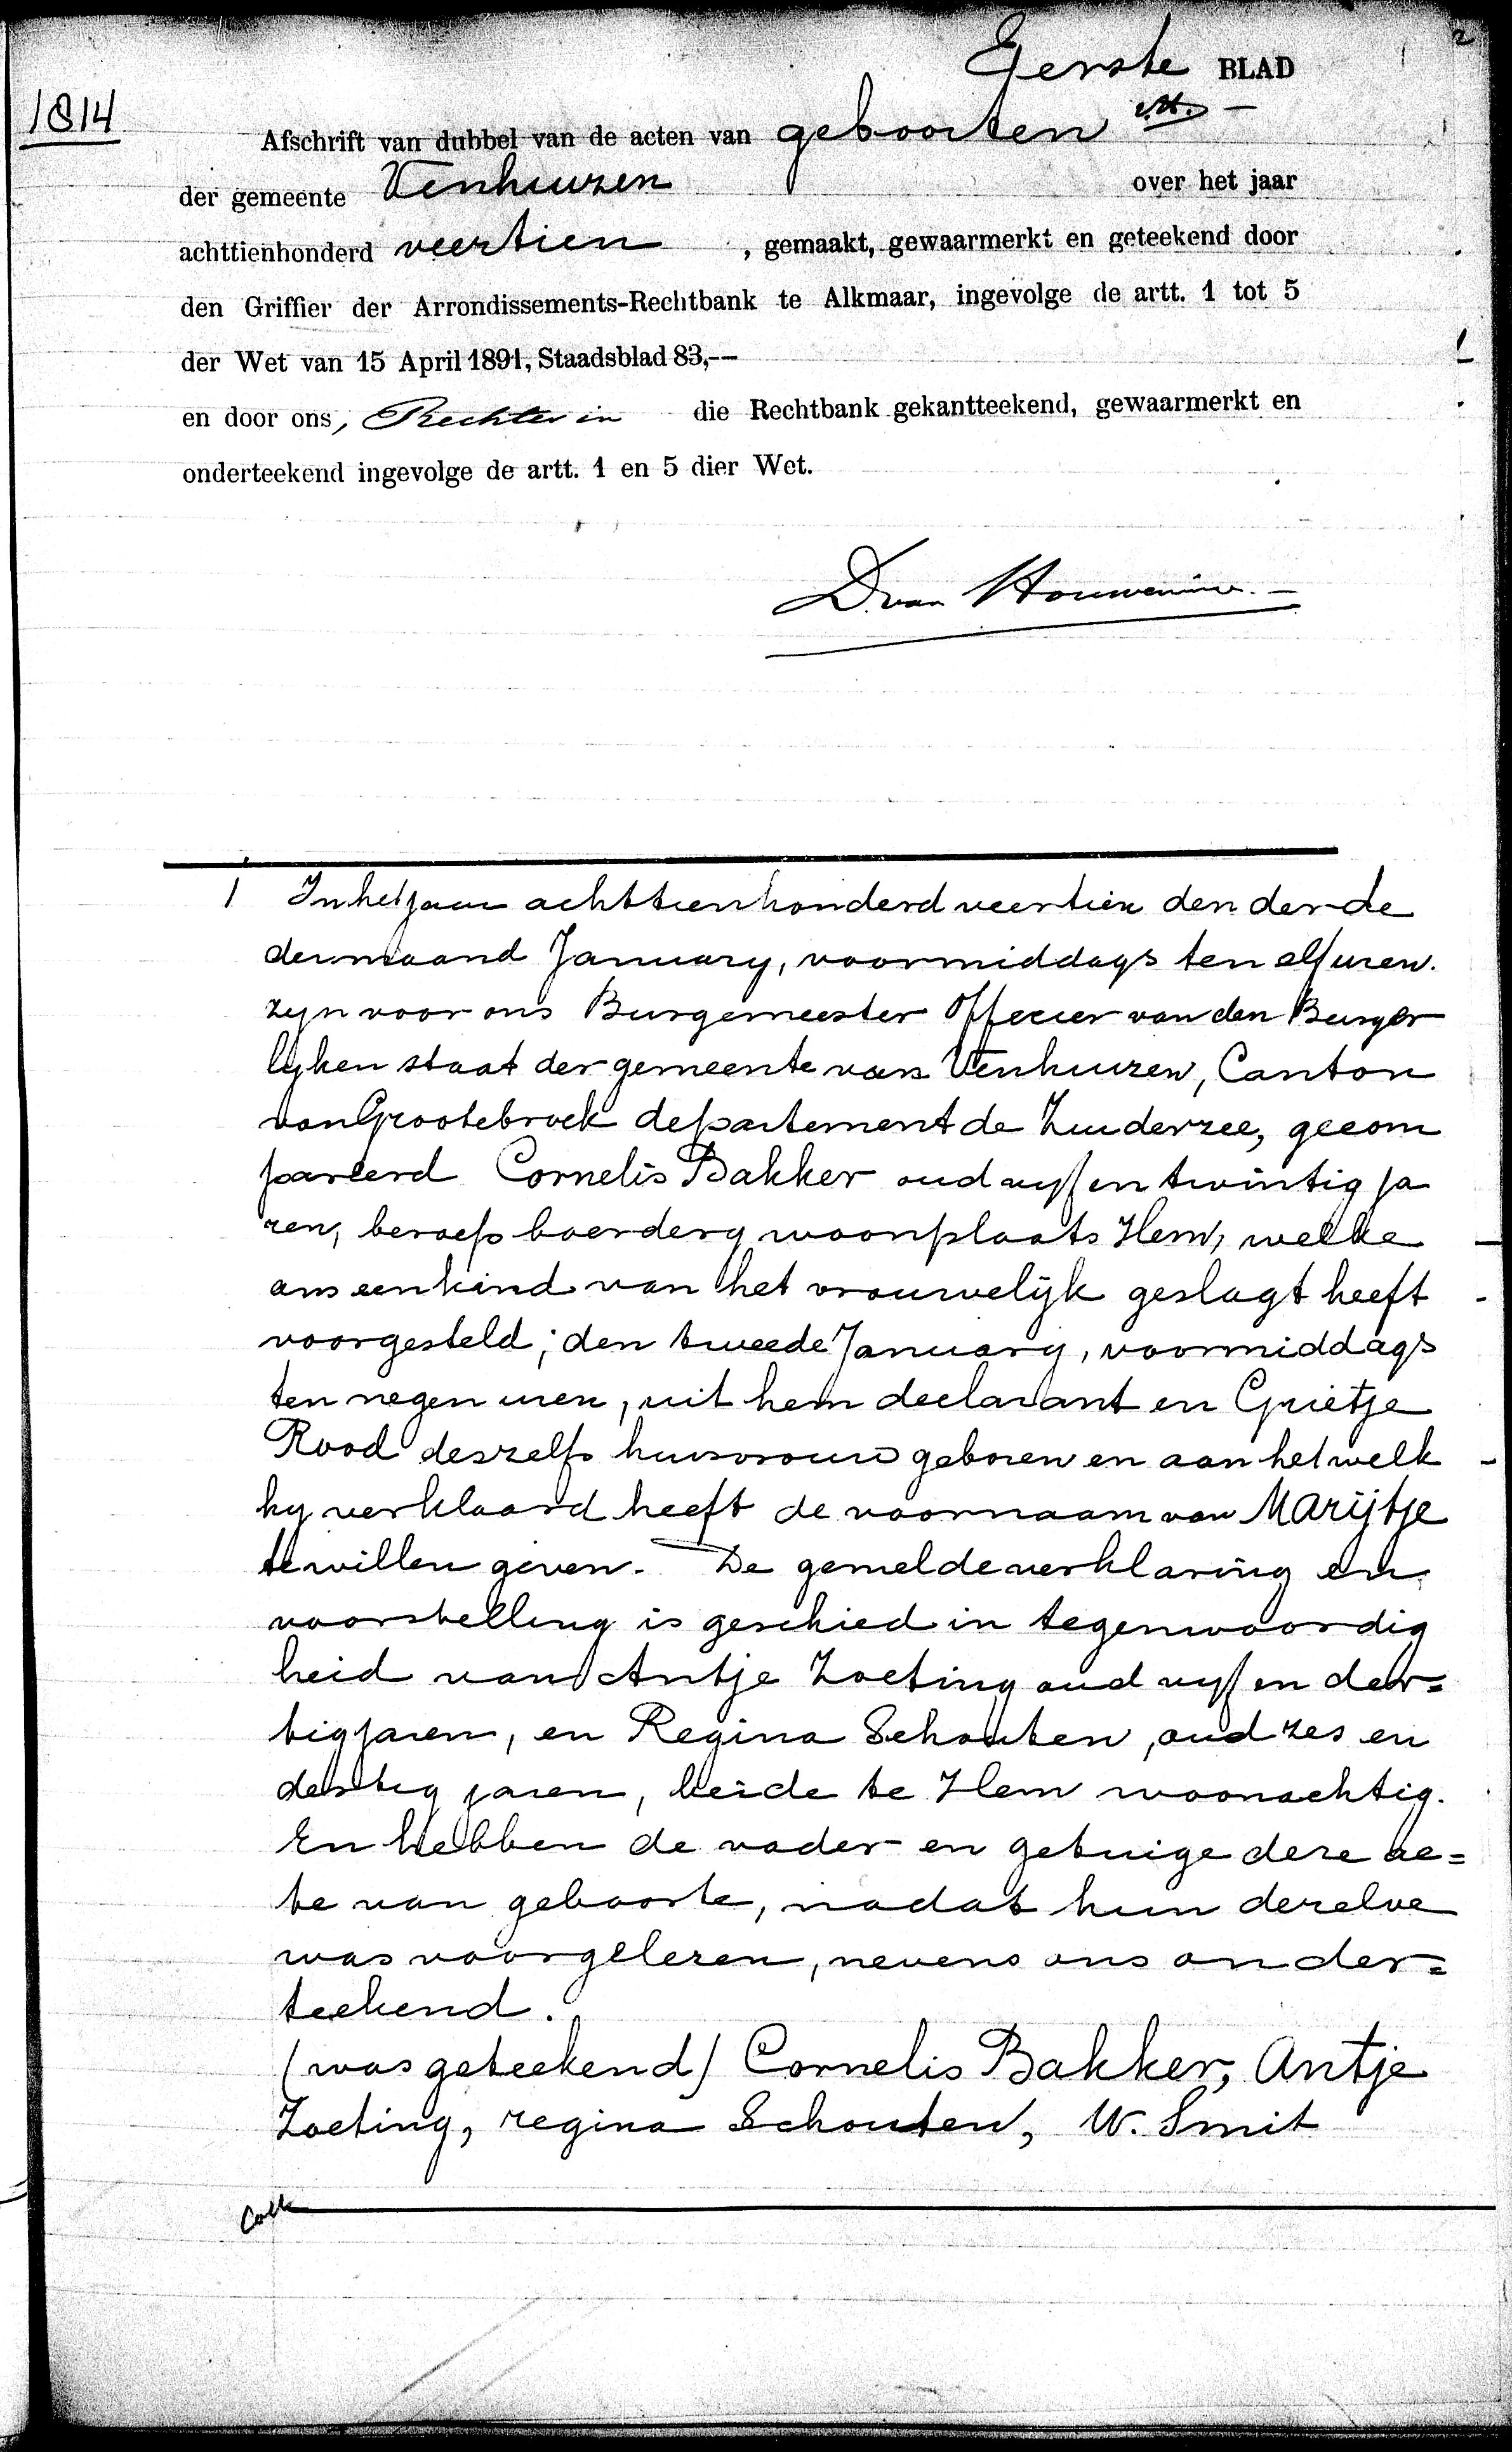 Eerste BLAD
2
1814
Afschrift van dubbel van de acten van geboorten
der gemeente Venhuizen over het jaar
achttienhonderd veertien, gemaakt, gewaarmerkt en geteekend door
den Griffier der Arrondissements-Rechtbank te Alkmaar, ingevolge de artt. 1 tot 5
der Wet van 15 April 1891, Staadsblad 83,--
en door ons, Rechter in die Rechtbank gekantteekend, gewaarmerkt en
onderteekend ingevolge de artt. 1 en 5 dier Wet.
D. van
1 In het jaar achttienhonderd veertien den derde
der maand January, voormiddags ten elf uren.
zyn voor ons Burgemeester Officier van den Burger
lyken staat der gemeente van Venhuizen, Canton
van Grootebroek departement de Zuiderzee, gecom
pareerd Cornelis Bakker oud vyf en twintig ja
ren, beroep boerdery woonplaats Hem, welke
ons een kind van het vrouwelijk geslagt heeft
voorgesteld; den tweede January, voormiddags
ten negen uren, uit hem declarant en Grietje
Rood deszelfs huisvrouw geboren en aan het welk
hy verklaard heeft de voornaam van Marijtje
te willen geven. De gemelde verklaring en
voorstelling is geschied in tegenwoordig
heid van Antje Zoeting oud vyf en der=
tig jaren, en Regina Schouten, oud zes en
dertig jaren, beide te Hem woonachtig.
En hebben de vader en getuige deze ac=
te van geboorte, nadat hun dezelve
was voorgelezen, nevens ons onder=
teekend.
(was geteekend) Cornelis Bakker, Antje
Zoeting, regina Schouten, W. Smit
Coll